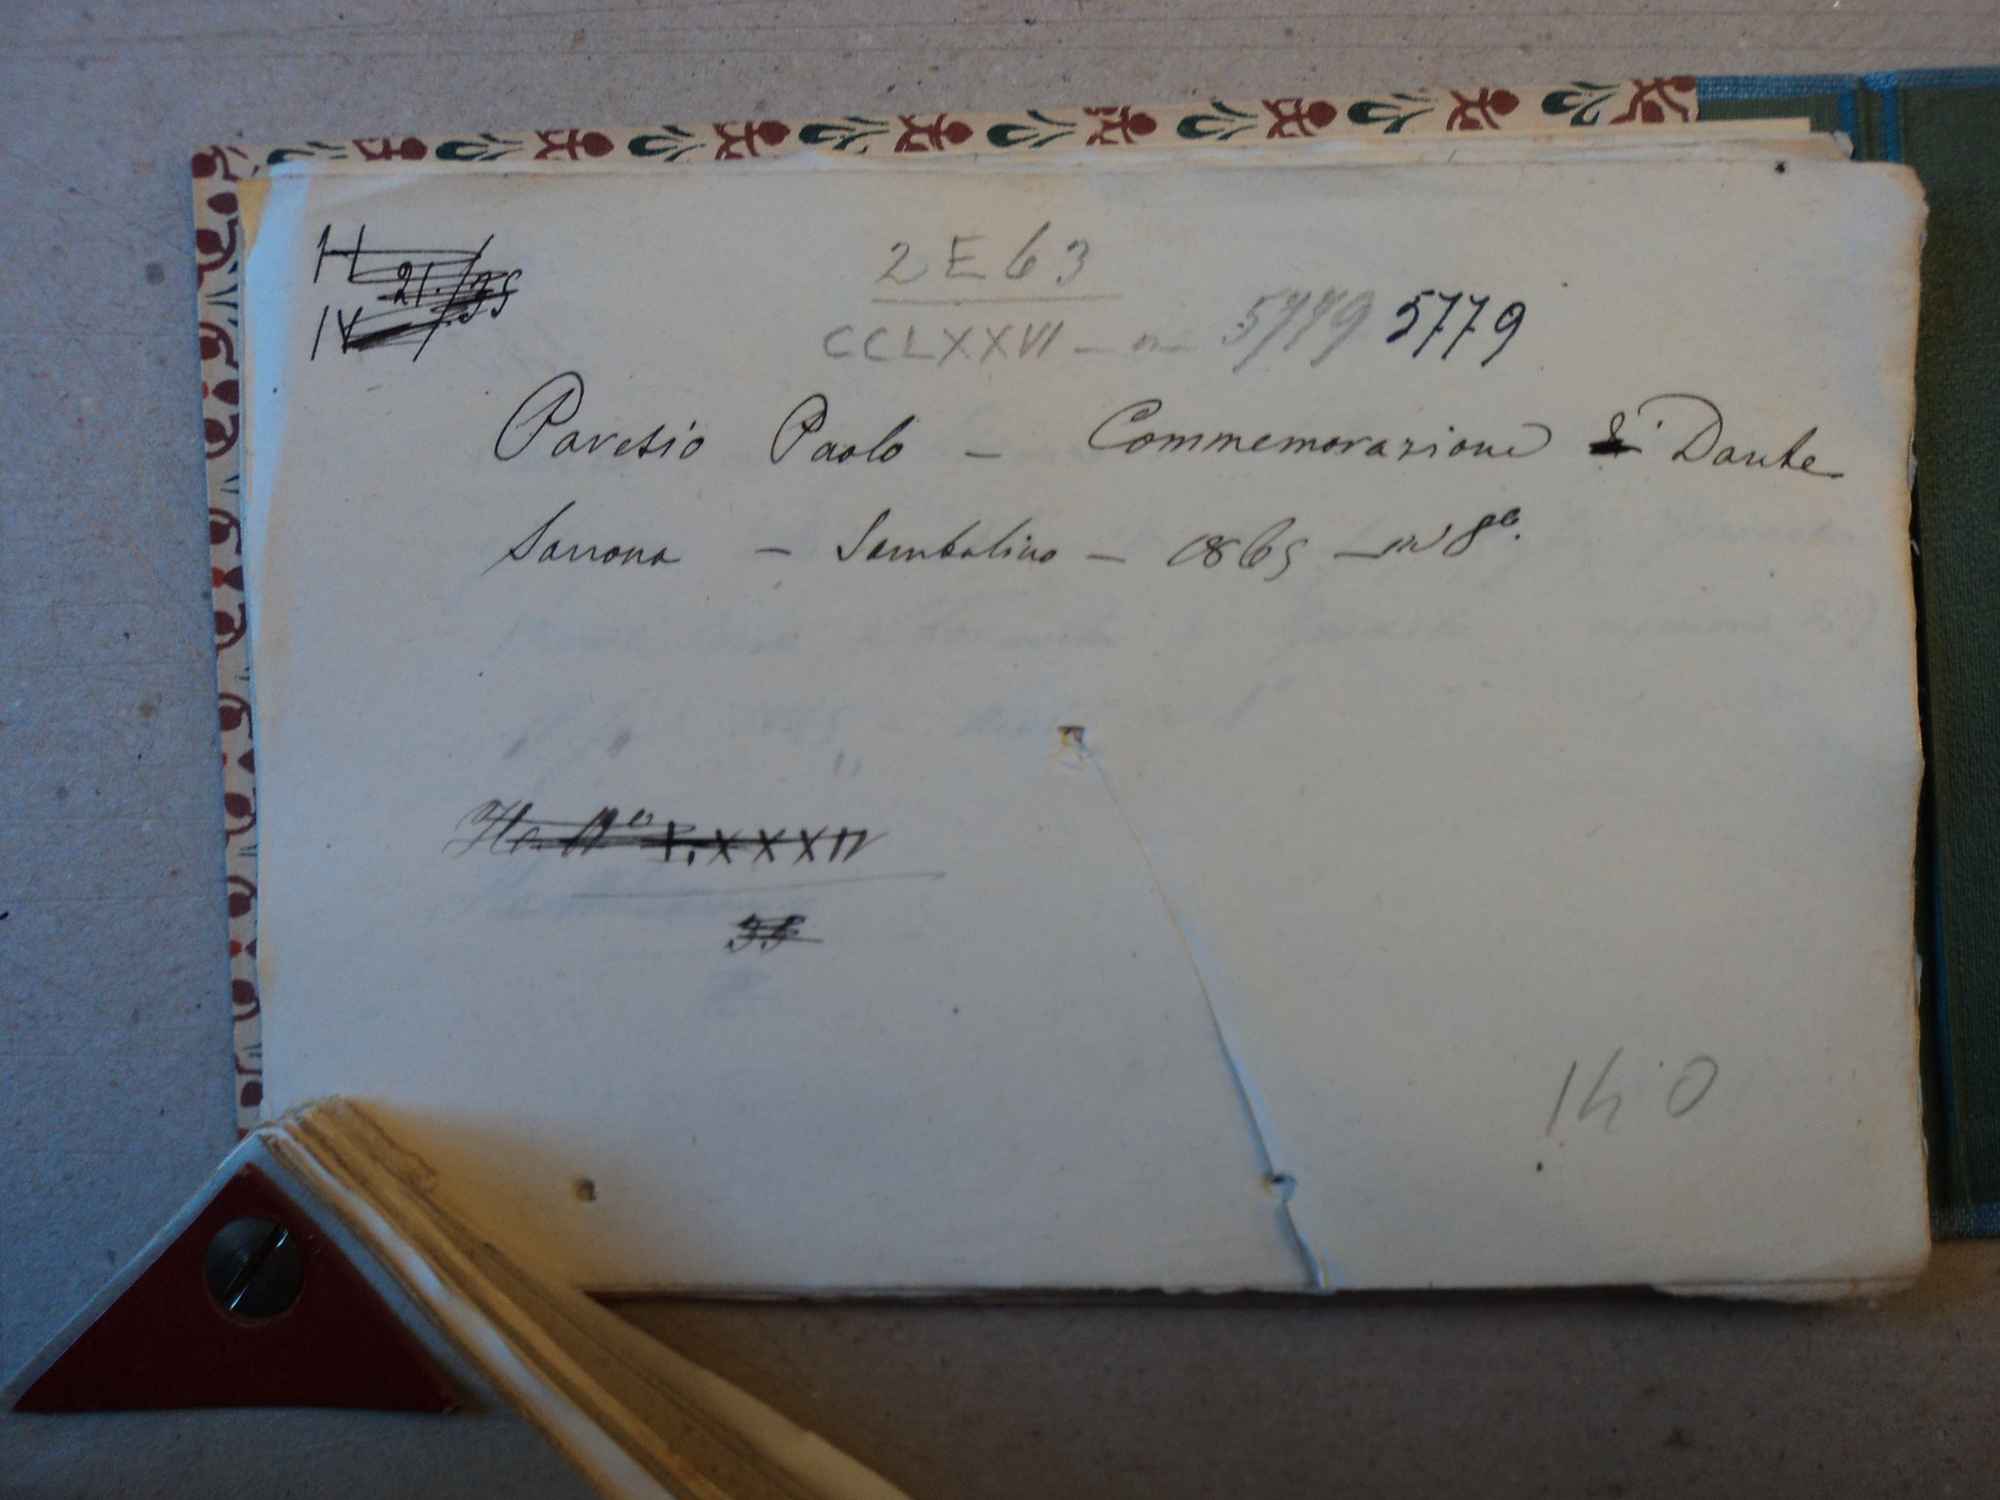 H 21./35
IV
2E63
CCLXXVI - n - 5779 5779
Pavesio Paolo - Commemorazione di Dante
Savona - Sambolino - 1865 - in 8º.
LXXXIV
35
14 0